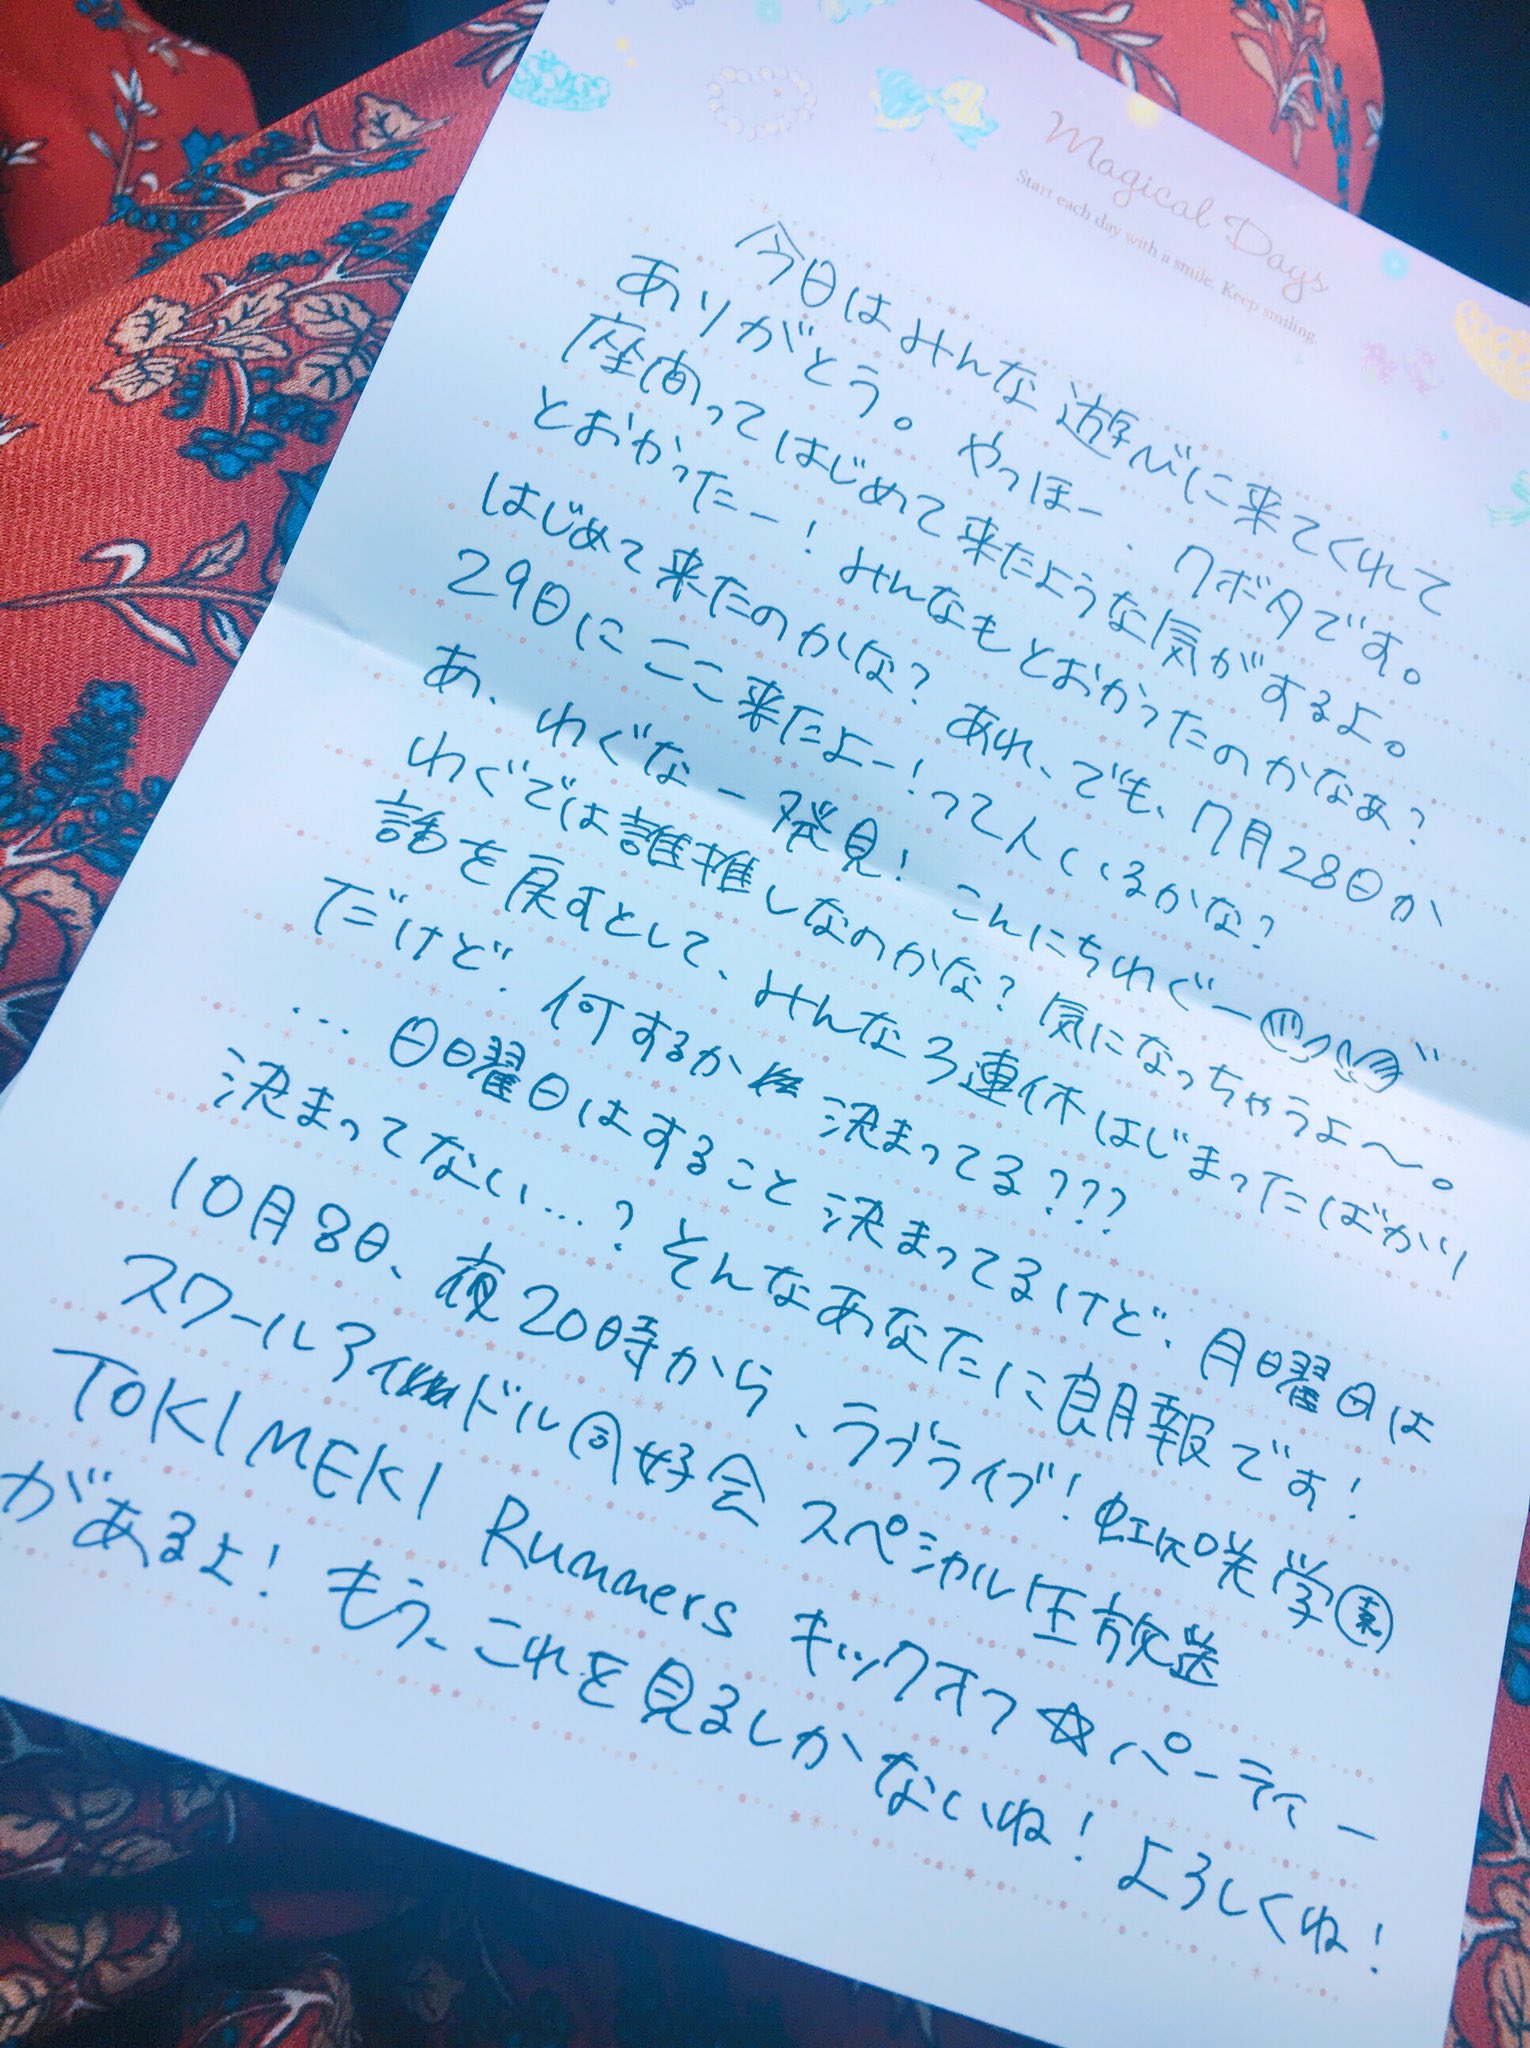 Magical Days
Start each day with a smile. Keep smiling.
今日はみんな遊びに来てくれて
ありがとう。やっほー、クボタです。
座間ってはじめて来たような気がするよ。
とおかったー！みんなもとおかったのかなぁ？
はじめて来たのかな？あれ、でも、7月28日か
29日にここ来たよー！って人いるかな？
あ、わぐなー発見！こんにちわぐー
わぐでは誰推しなのかな？気になっちゃうよ〜。
話を戻すとして、みんな3連休はじまったばかり
だけど、何するか決まってる？？？
…日曜日はすること決まってるけど、月曜日は
決まってない…？そんなあなたに朗報です！
10月8日、夜20時から、ラブライブ！虹ヶ咲学園
スクールアイドル同好会 スペシャル生放送
TOKIMEKI Runners キックオフ☆パーティー
があるよ！もう、これを見るしかないね！よろしくね！